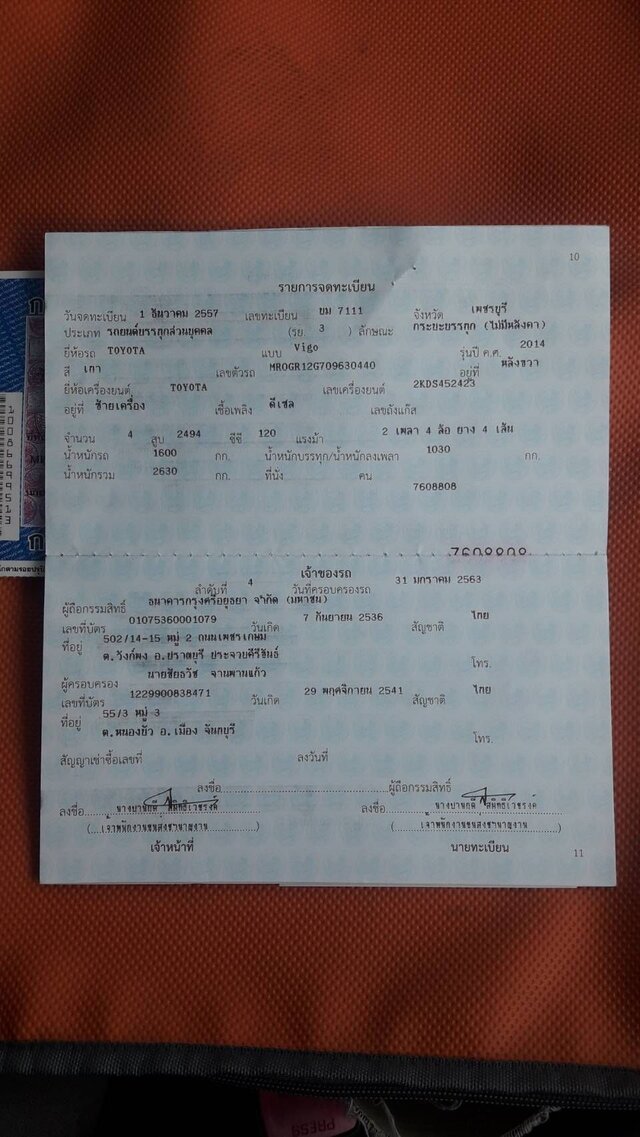 10
รายการจดทะเบียน
วันจดทะเบียน 1 ธันวาคม 2557 เลขทะเบียน ขม 7111 จังหวัด เพชรบุรี
ประเภท รถยนต์บรรทุกส่วนบุคคล (รย. 3 ) ลักษณะ กระบะบรรทุก (ไม่มีหลังคา)
ยี่ห้อรถ TOYOTA แบบ Vigo รุ่นปี ค.ศ. 2014
สี เทา เลขตัวรถ MROGR12G709630440 อยู่ที่ หลังขวา
ยี่ห้อเครื่องยนต์ TOYOTA เลขเครื่องยนต์ 2KDS452423
อยู่ที่ ซ้ายเครื่อง เชื้อเพลิง ดีเซล เลขถังแก๊ส
จำนวน 4 สูบ 2494 ซีซี 120 แรงม้า 2 เพลา 4 ล้อ ยาง 4 เส้น
น้ำหนักรถ 1600 กก. น้ำหนักบรรทุก/น้ำหนักลงเพลา 1030 กก.
น้ำหนักรวม 2630 กก. ที่นั่ง คน
7608808
7608808
เจ้าของรถ
ลำดับที่ 4 วันที่ครอบครองรถ 31 มกราคม 2563
ผู้ถือกรรมสิทธิ์ ธนาคารกรุงศรีอยุธยา จำกัด (มหาชน)
เลขที่บัตร 01075360001079 วันเกิด 7 กันยายน 2536 สัญชาติ ไทย
ที่อยู่ 502/14-15 หมู่ 2 ถนนเพชรเกษม
ต.วังก์พง อ.ปราณบุรี ประจวบคีรีขันธ์ โทร.
ผู้ครอบครอง นายชัยธวัช จานพานแก้ว
เลขที่บัตร 1229900838471 วันเกิด 29 พฤศจิกายน 2541 สัญชาติ ไทย
ที่อยู่ 55/3 หมู่ 3
ต.หนองบัว อ.เมือง จันทบุรี โทร.
สัญญาเช่าซื้อเลขที่ ลงวันที่
ลงชื่อ ผู้ถือกรรมสิทธิ์
ลงชื่อ ลงชื่อ
(เจ้าพนักงานขนส่งชำนาญงาน) (เจ้าพนักงานขนส่งชำนาญงาน)
เจ้าหน้าที่ นายทะเบียน
11